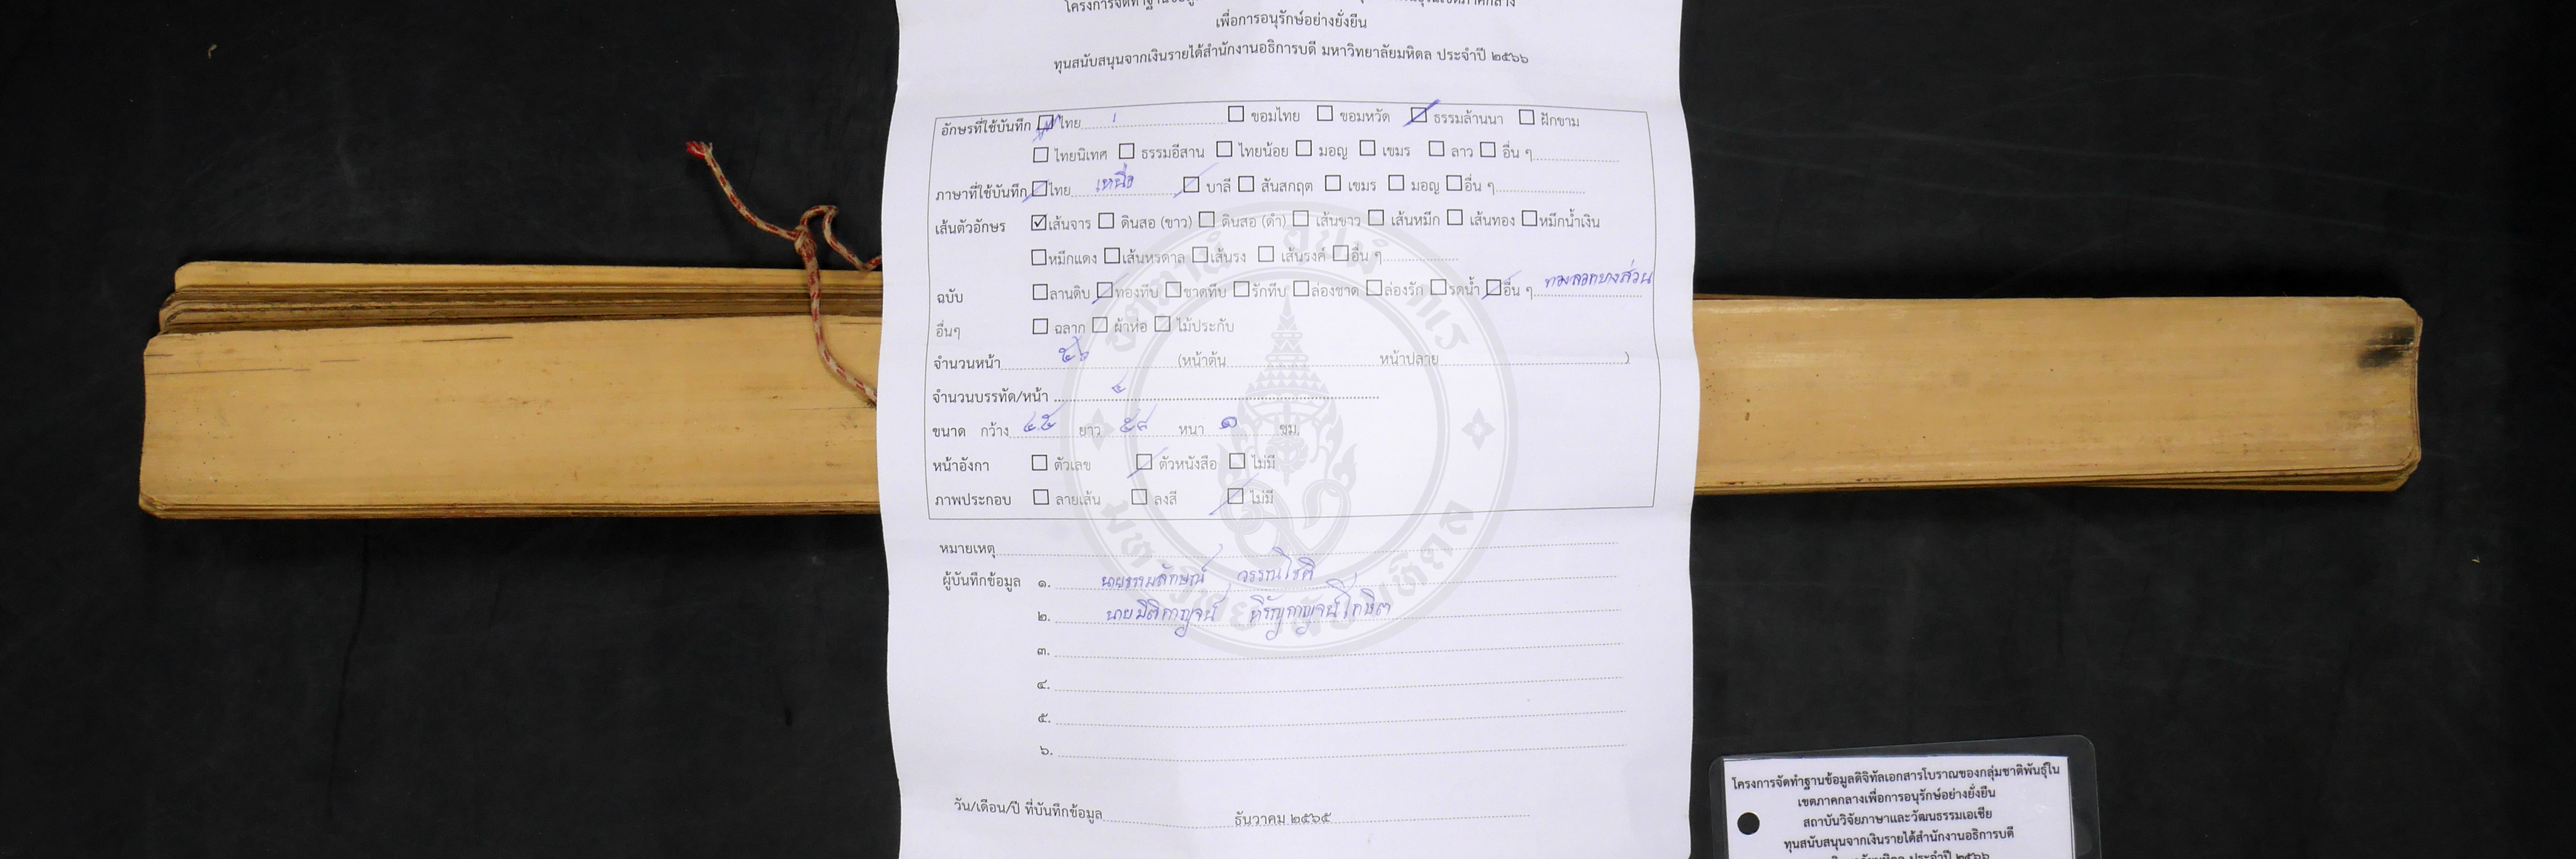 เพื่อการอนุรักษ์อย่างยั่งยืน
ทุนสนับสนุนจากเงินรายได้สำนักงานอธิการบดี มหาวิทยาลัยมหิดล ประจำปี ๒๕๖๖
อักษรที่ใช้บันทึก ไทย ขอมไทย ขอมหวัด ธรรมล้านนา ฝักขาม
ไทยนิเทศ ธรรมอีสาน ไทยน้อย มอญ เขมร ลาว อื่น ๆ
ภาษาที่ใช้บันทึก ไทย เหนือ บาลี สันสกฤต เขมร มอญ อื่น ๆ
เส้นตัวอักษร เส้นจาร ดินสอ (ขาว) ดินสอ (ดำ) เส้นขาว เส้นหมึก เส้นทอง หมึกน้ำเงิน
หมึกแดง เส้นหรดาล เส้นรง เส้นรงค์ อื่น ๆ
ฉบับ ลานดิบ ทองทึบ ชาดทึบ รักทึบ ล่องชาด ล่องรัก รดน้ำ อื่น ๆ ทองลอกบางส่วน
อื่นๆ ฉลาก ผ้าห่อ ไม้ประกับ
จำนวนหน้า ๕๖ (หน้าต้น หน้าปลาย )
จำนวนบรรทัด/หน้า ๔
ขนาด กว้าง ๔.๕ ยาว ๕๘ หนา ๑ ซม.
หน้าอังกา ตัวเลข ตัวหนังสือ ไม่มี
ภาพประกอบ ลายเส้น ลงสี ไม่มี
หมายเหตุ
ผู้บันทึกข้อมูล ๑. นายธรรมลักษณ์ วรรณโชติ
๒. นายมิติกาญจน์ หิรัญกาญจน์โกษิต
๓.
๔.
๕.
๖.
วัน/เดือน/ปี ที่บันทึกข้อมูล ธันวาคม ๒๕๖๕
โครงการจัดทำฐานข้อมูลดิจิทัลเอกสารโบราณของกลุ่มชาติพันธุ์ใน
เขตภาคกลางเพื่อการอนุรักษ์อย่างยั่งยืน
สถาบันวิจัยภาษาและวัฒนธรรมเอเชีย
ทุนสนับสนุนจากเงินรายได้สำนักงานอธิการบดี